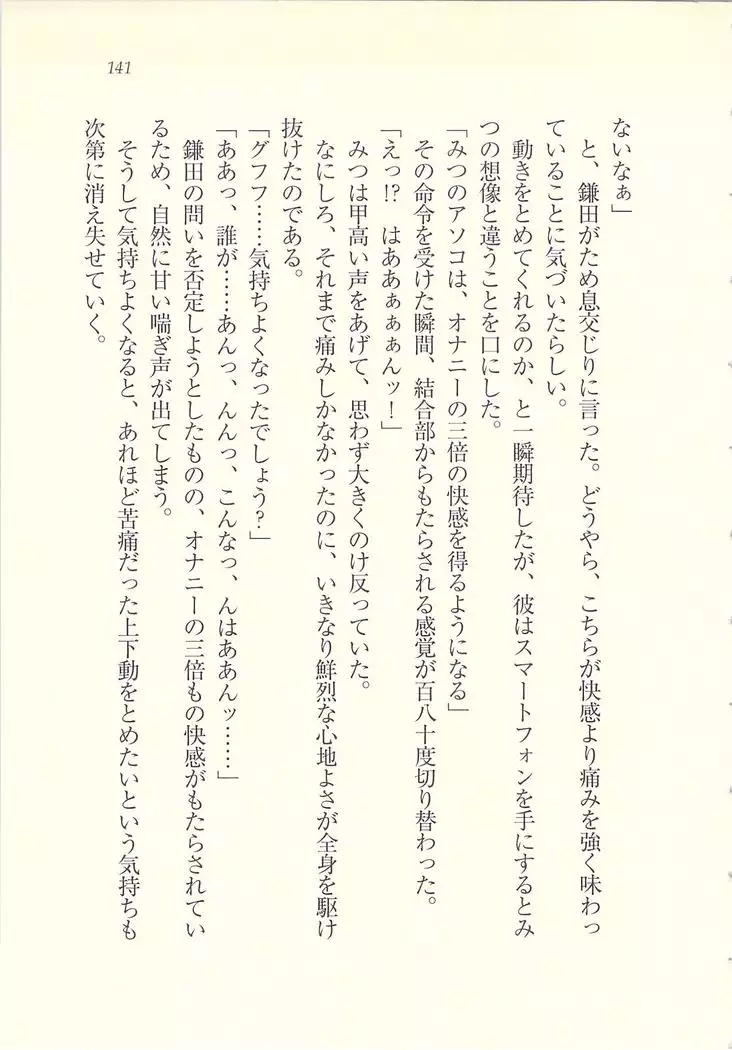 141
ないなぁ」
と、鎌田がため息交じりに言った。どうやら、こちらが快感より痛みを強く味わっ
ていることに気づいたらしい。
動きをとめてくれるのか、と一瞬期待したが、彼はスマートフォンを手にするとみ
つの想像と違うことを口にした。
「みつのアソコは、オナニーの三倍の快感を得るようになる」
その命令を受けた瞬間、結合部からもたらされる感覚が百八十度切り替わった。
「えっ!? はああぁぁぁんッ！」
みつは甲高い声をあげて、思わず大きくのけ反っていた。
なにしろ、それまで痛みしかなかったのに、いきなり鮮烈な心地よさが全身を駆け
抜けたのである。
「グフフ……気持ちよくなったでしょう？」
「ああっ、誰が……あんっ、んんっ、こんなっ、んはああんッ……」
鎌田の問いを否定しようとしたものの、オナニーの三倍もの快感がもたらされてい
るため、自然に甘い喘ぎ声が出てしまう。
そうして気持ちよくなると、あれほど苦痛だった上下動をとめたいという気持ちも
次第に消え失せていく。